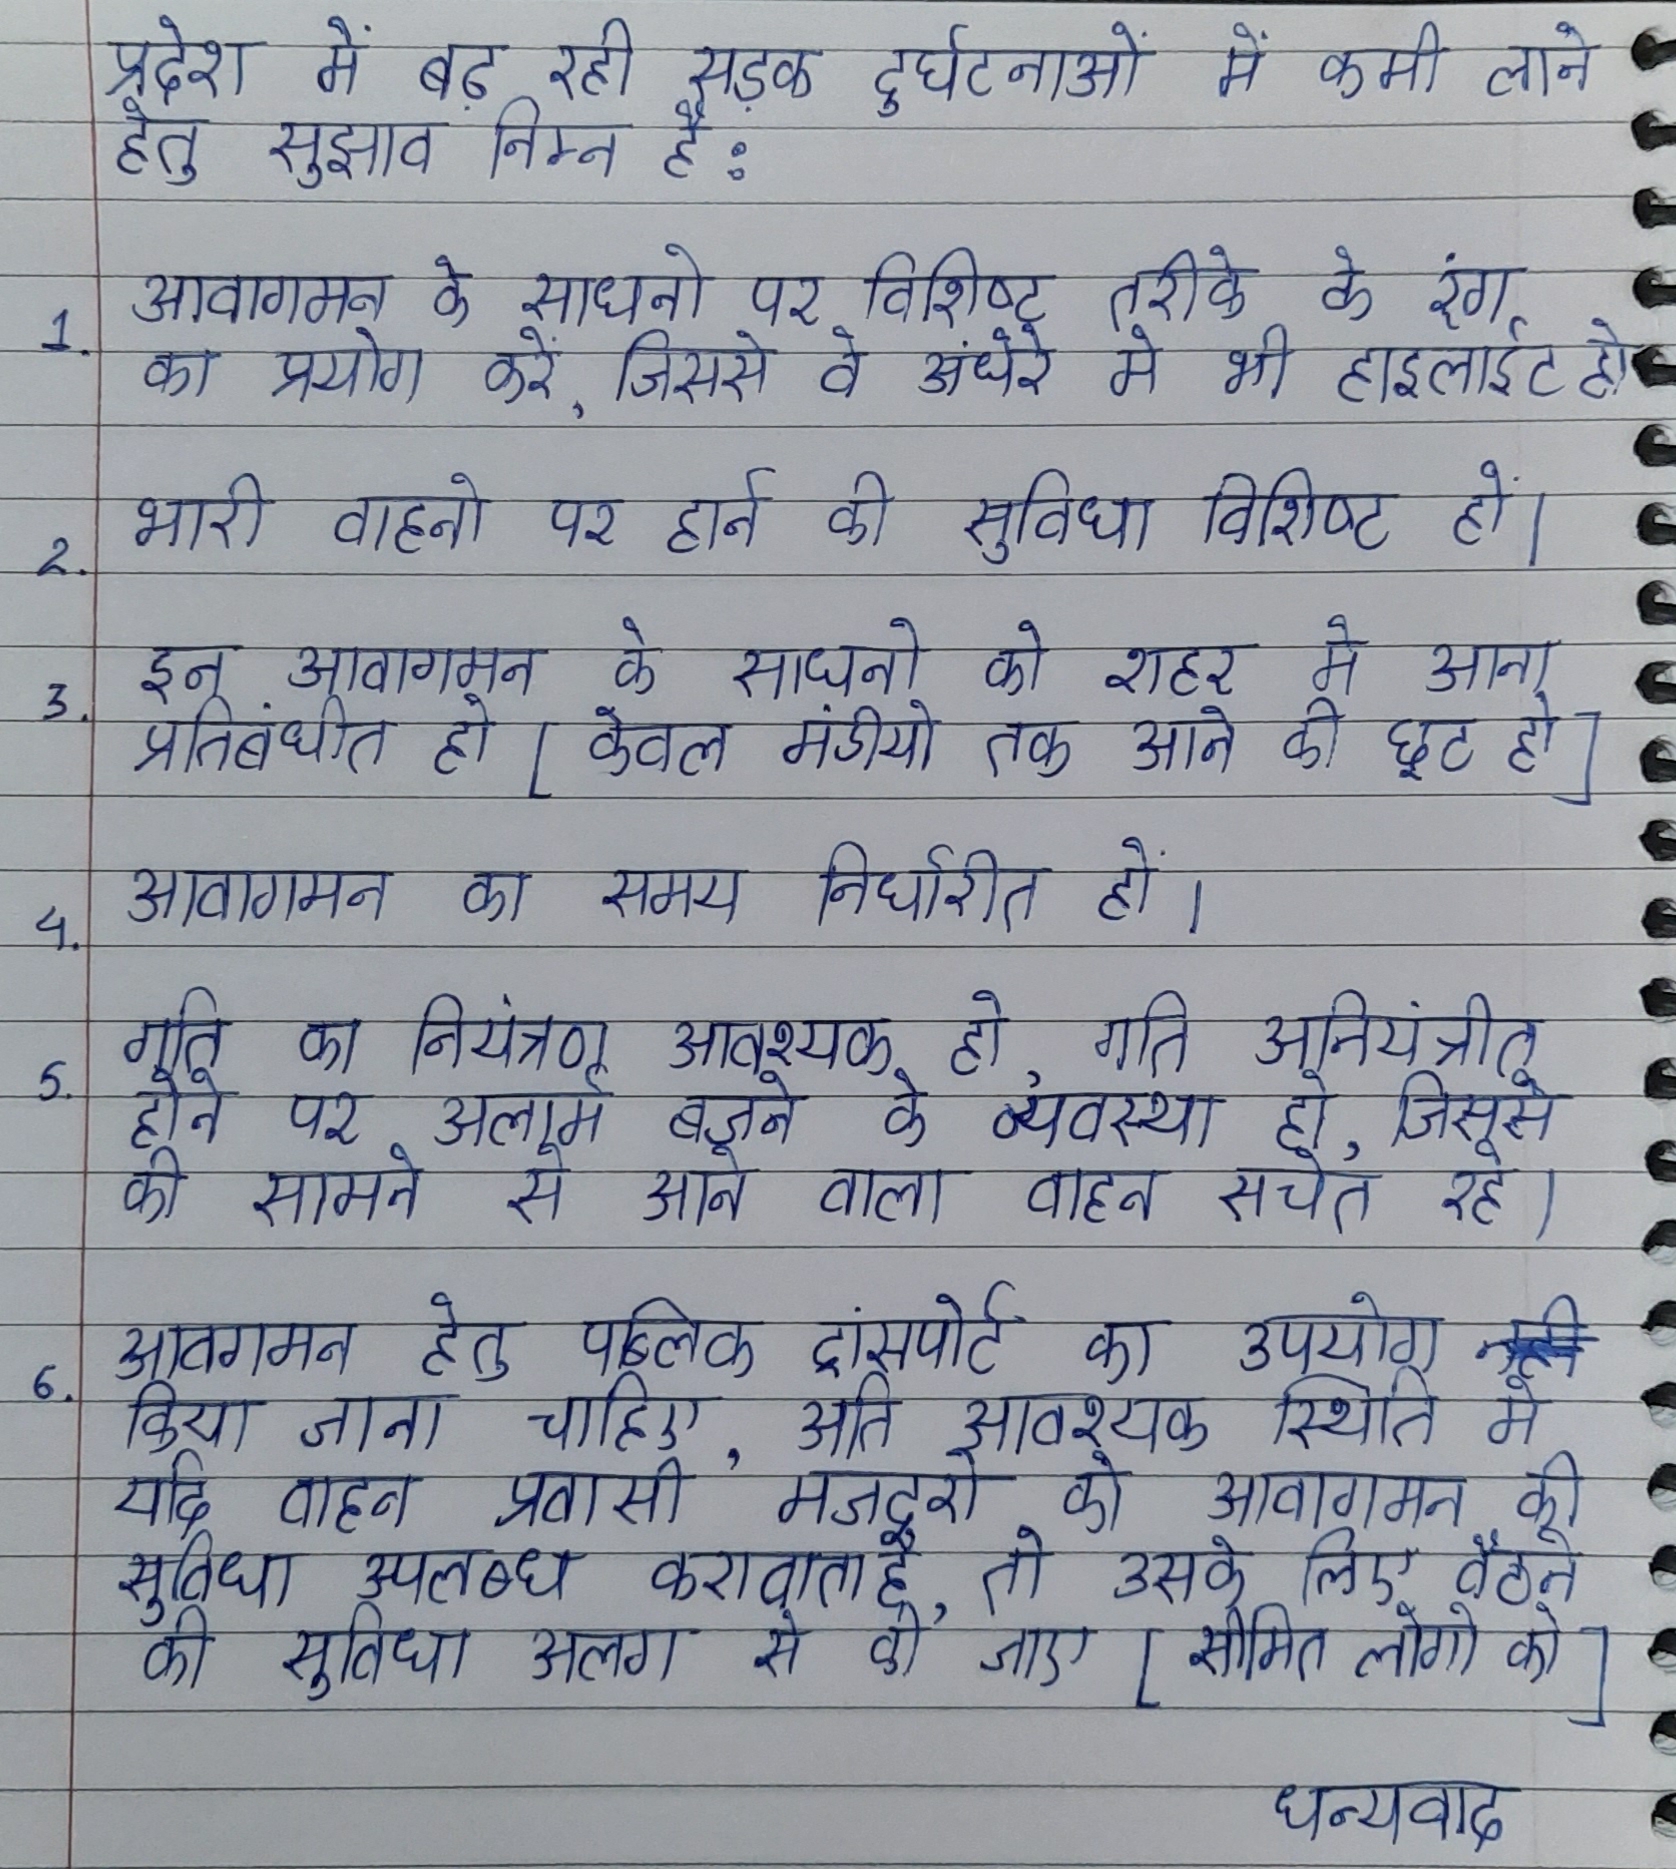 प्रदेश में बढ़ रही सड़क दुर्घटनाओं में कमी लाने
हेतु सुझाव निम्न है :
1. आवागमन के साधनो पर विशिष्ट तरीके के रंग
का प्रयोग करें, जिससे वे अंधेरे मे भी हाइलाईट हो
2. भारी वाहनो पर हार्न की सुविधा विशिष्ट हों।
3. इन आवागमन के साधनो को शहर मे आना
प्रतिबंधीत हो [ केवल मंडीयो तक आने की छूट हो ]
4. आवागमन का समय निर्धारीत हों।
5. गति का नियंत्रण आवश्यक हो, गति अनियंत्रीत
होने पर अलार्म बजने के व्यवस्था हो, जिससे
की सामने से आने वाला वाहन सचेत रहे।
6. आवगमन हेतु पब्लिक ट्रांसपोर्ट का उपयोग
किया जाना चाहिए, अति आवश्यक स्थिति मे
यदि वाहन प्रवासी मजदूरो को आवागमन की
सुविधा उपलब्ध करावाता है, तो उसके लिए बैठने
की सुविधा अलग से दी जाए [ सीमित लोगो को ]
धन्यवाद